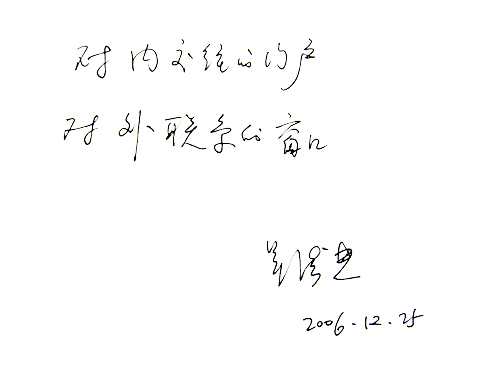 对内交流的门户
对外联系的窗口
2006.12.25